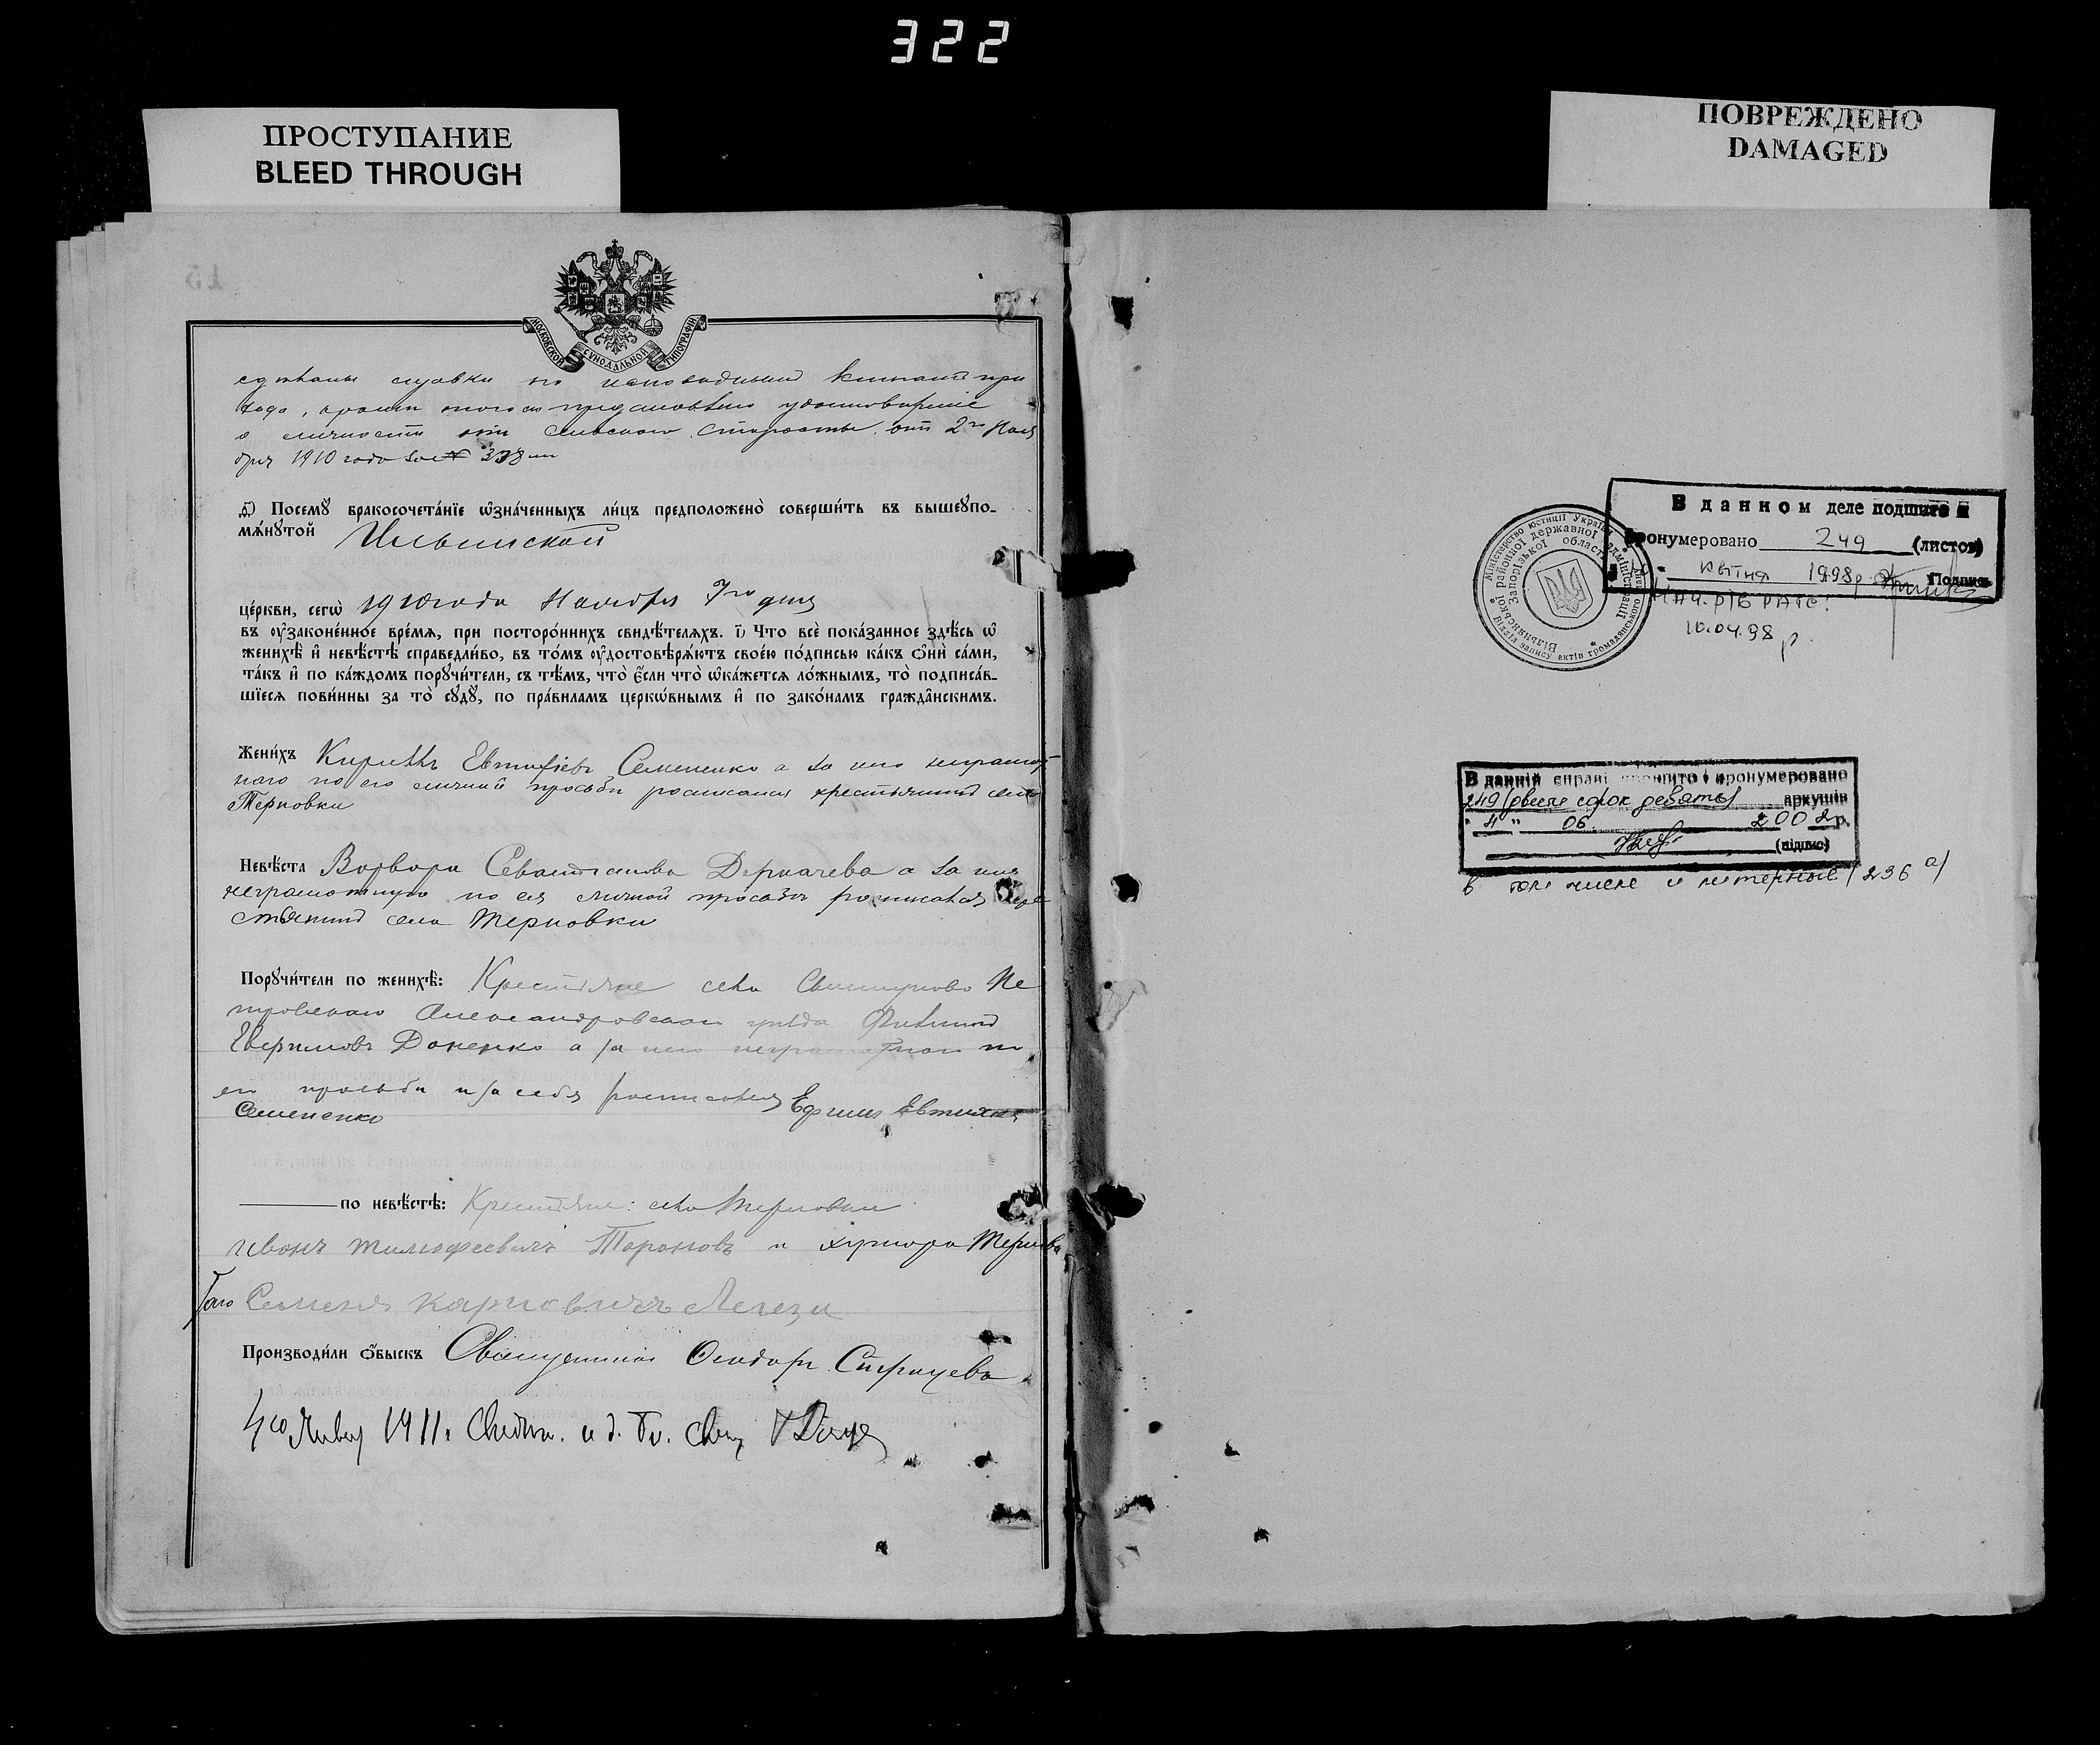 322
ПРОСТУПАНИЕ
BLEED THROUGH
ПОВРЕЖДЕНО
DAMAGED
МОСКОВСКОЙ СѴНОДАЛЬНОЙ ТИПОГРАФІИ
справки по исповѣднымъ книгамъ при
хода, удостовѣреніе
о личности отъ сельскаго старосты отъ 2го Нояб
бря 1910 года за №
Посемꙋ бракосочета́нїе ѡзна́ченныхъ ли́цъ предположено̀ соверши́ть въ вышеꙋпо-
мѧ́нꙋтой Ильинской
це́ркви, сегѡ̀ 1910 года Ноября 7го дня
въ ᲂу҆законе́нное вре́мѧ, при посторо́ннихъ свидѣ́телѧхъ. і҃) Что всѐ пока́занное здѣ́сь ѡ҆
женихѣ̀ и҆ невѣ́стѣ справедли́во, въ то́мъ ᲂу҆достовѣрѧ́ютъ свое́ю по́дписью ка́къ ѻ҆нѝ са́ми,
та́къ и҆ по ка́ждомъ порꙋчи́тели, съ тѣ́мъ, что̀ є҆́сли что̀ ѡ҆ка́жетсѧ ло́жнымъ, то̀ подписа́в-
шїесѧ пови́нны за то̀ сꙋдꙋ̀, по пра́виламъ церкѡ́внымъ и҆ по зако́намъ гражда́нскимъ.
Жени́хъ Кириллъ Евтифіевъ Семененко а за него неграмот
наго по его личной просьбѣ росписался крестьянинъ села
Терновки
Невѣ́ста Варвара Севастіанова Деркачева а за нее
неграмотную по ея личной просьбѣ росписался кре
стьянинъ села Терновки
Порꙋчи́тели по женихѣ̀: Крестьяне села Свистунова Пе
тровскаго Александровскаго уѣзда Филиппъ
Доненко а за него неграмотнаго по
его просьбѣ и за себя росписался Ефимъ Евтихіевъ
Семененко
по невѣ́стѣ: Крестьяне: села Терновки
Иванъ Тимофеевичъ Таранов и хутора
Семенъ Карповичъ Легеза
Производи́ли ѻ҆́быскъ Священникъ Ѳеодоръ Стращевъ
4го Янвр 1911 г. Свидѣт. и. д. Бл. Свящ.
В данном деле подшито и
пронумеровано 249 (листов)
квітня 1998р. Подпись
Нач. РВ РАГС:
10.04.98 р
Міністерство юстиції України
Вільнянської районної державної адміністрації
Запорізької області
Відділ запису актів громадянського
В данній справі прошито і пронумеровано
249 (двести сорок девять) аркушів
" 11 " 06. 2002 р.
(підпис)
в том числе и литерные (236 а)